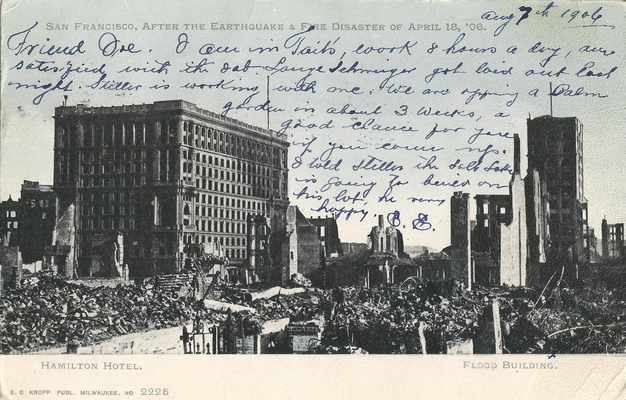 aug 7th 1906
SAN FRANCISCO, AFTER THE EARTHQUAKE & FIRE DISASTER OF APRIL 18, '06.
Friend Joe. I am in Taits, work 8 hours a day, am
satisfied with the Job got laid out Last
night. Stiller is working with me. We are opping a Palm
garden in about 3 weeks, a
good chance for you
if you come up.
I told Stiller the
is going to build on
his lot, he very
happy. E. E.
HAMILTON HOTEL.
FLOOD BUILDING.
E. C. KROPP. PUBL. MILWAUKEE, NO 2225